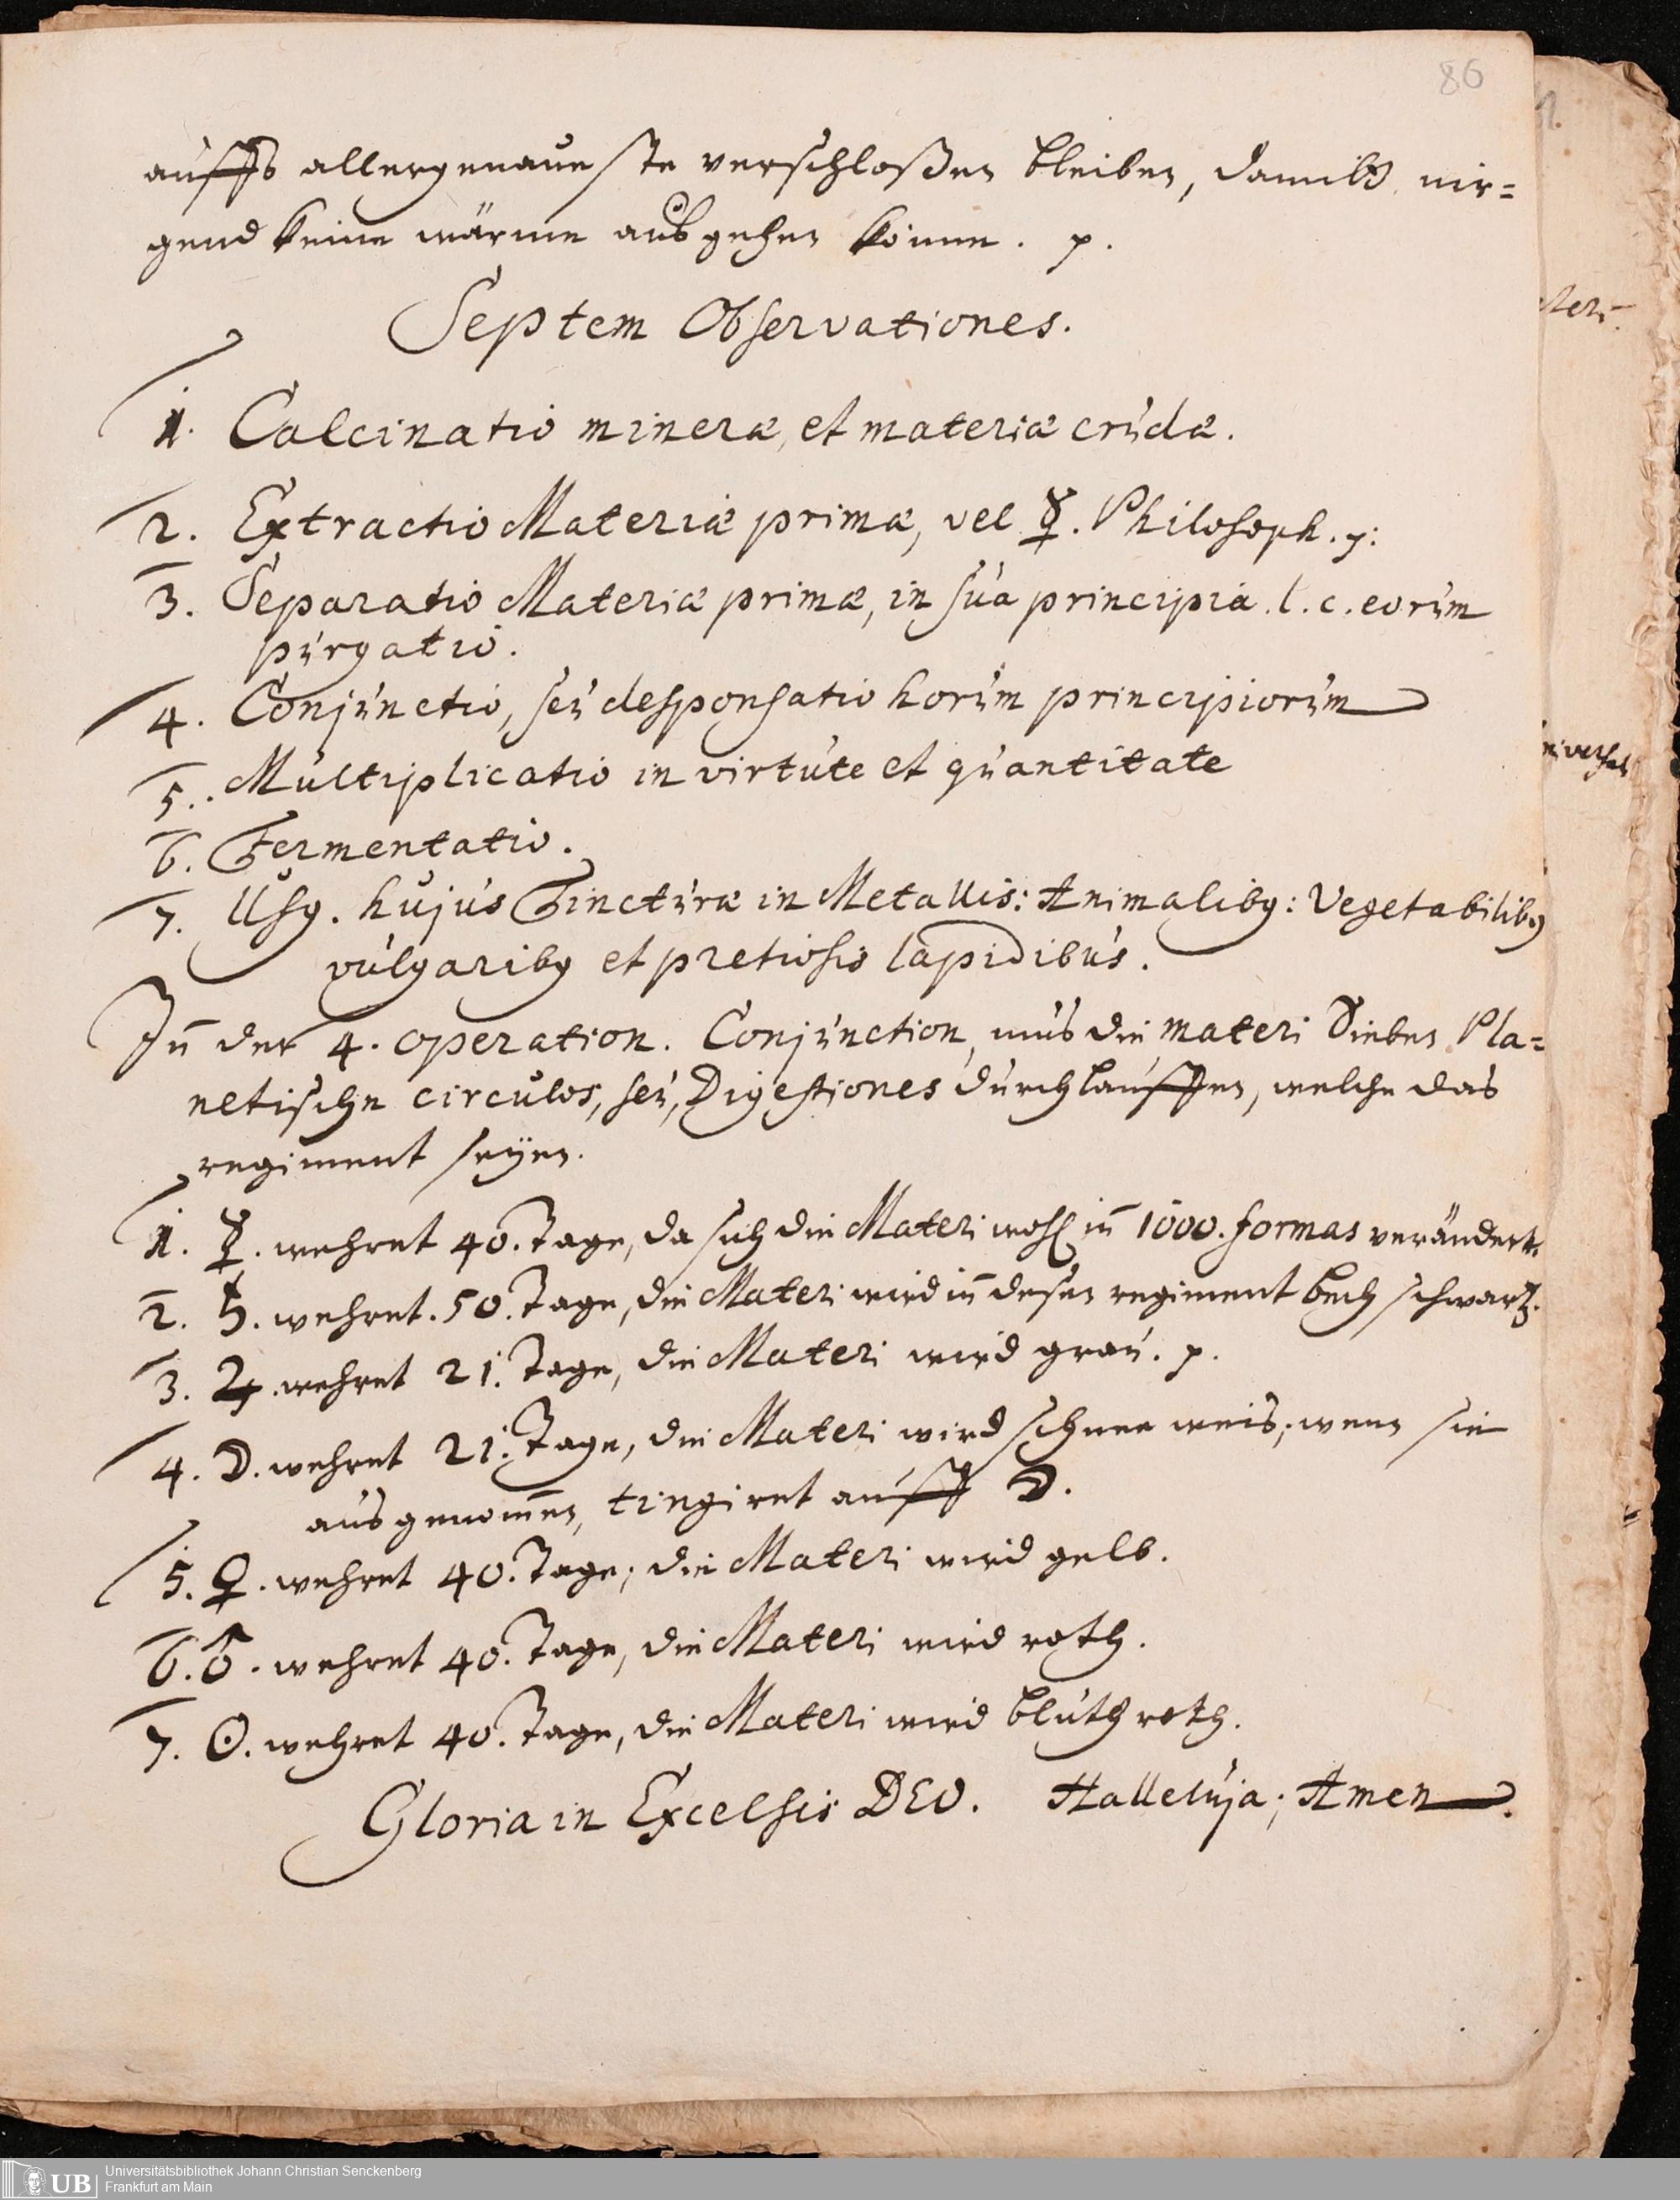 86
auffs allergenaueste verschloßen bleiben, damitt nir=
gend keine wärme ausgehen könne. p.
Septem Observationes.
1. Calcinatio mineræ, et materiæ crúdæ.
2. Extractio Materiæ primæ, vel ☿. Philosoph. p:
3. Separatio Materiæ primæ, in súa principia. l. c. eorúm
púrgatio.
4. Conjúnctio, seú desponsatio horúm principiorúm
5. Múltiplicatio in virtúte et qúantitate
6. Fermentatio.
7. Usq. hujús Tinctúræ in Metallis: Animalibq: Vegetabilibq
vúlgaribq et pretiosis lapidibús.
In der 4. operation. Conjúnction, mús die materi Sieben Pla=
netischen circulos, seú, Digestiones dúrchlauffen, welche das
regiment seyen.
1. ☿. wehret 40. Tage, da sich die Materi wohl in 1000. formas verändert.
2. ♄. wehret. 50. Tage, die Materi wird in desen regiment bech schwartz.
3. ♃. wehret 21. Tage, die Materi wird graú. p.
4. ☽. wehret 21. Tage, die Materi wird schnee weis; wenn sie
aús genom̄en, tingiret auff ☽.
5. ♀. wehret 40. Tage; die Materi wird gelb.
6. ♂. wehret 40. Tage, die Materi wird roth.
7. ☉. wehret 40. Tage, die Materi wird blúthroth.
Gloria in Excelsis DEO. Hallelúja; Amen.
Universitätsbibliothek Johann Christian Senckenberg
UB
Frankfurt am Main